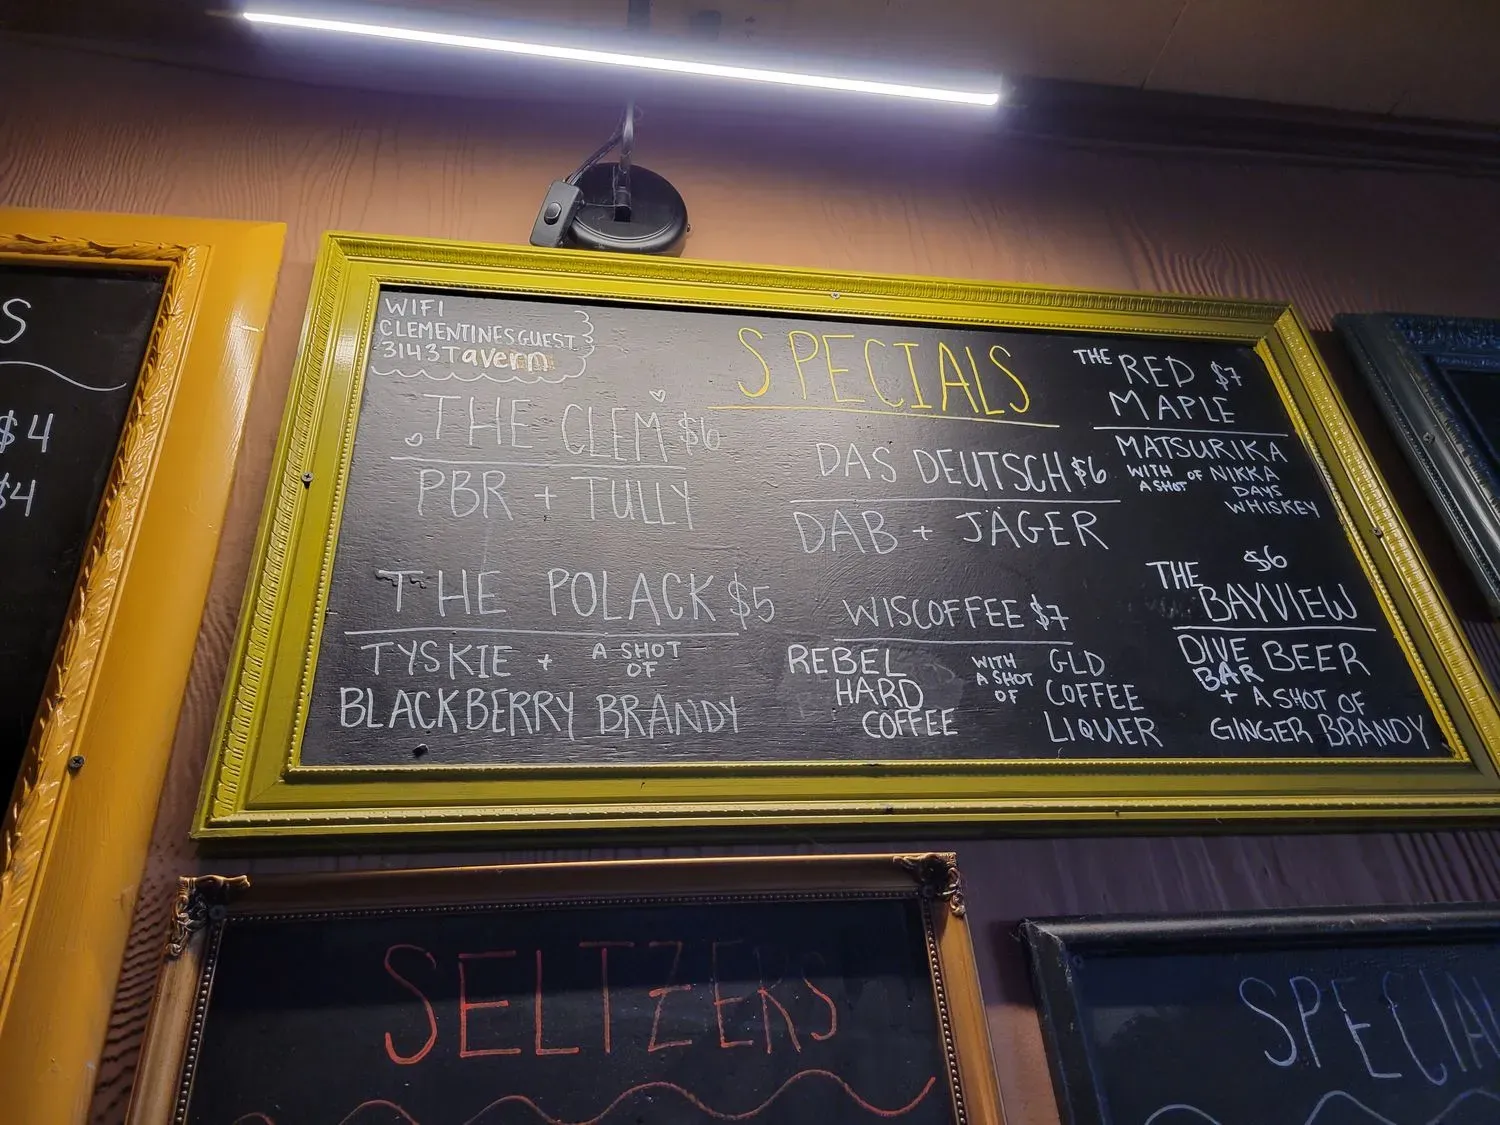 S
$4
$4
WIFI
CLEMENTINESGUEST
3143Tavern
SPECIALS
THE CLEM $6
PBR + TULLY
THE POLACK $5
TYSKIE + A SHOT OF
BLACKBERRY BRANDY
DAS DEUTSCH $6
DAB + JÄGER
WISCOFFEE $7
REBEL
HARD
COFFEE
WITH
A SHOT
OF
GLD
COFFEE
LIQUER
THE RED $7
MAPLE
MATSURIKA
WITH A SHOT OF NIKKA
DAYS
WHISKEY
$6
THE
BAYVIEW
DIVE BAR BEER
+ A SHOT OF
GINGER BRANDY
SELTZERS
SPECIAL